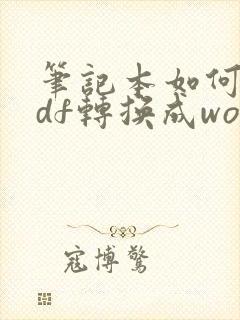 筆記本如何
df轉換成wo
寇博驚